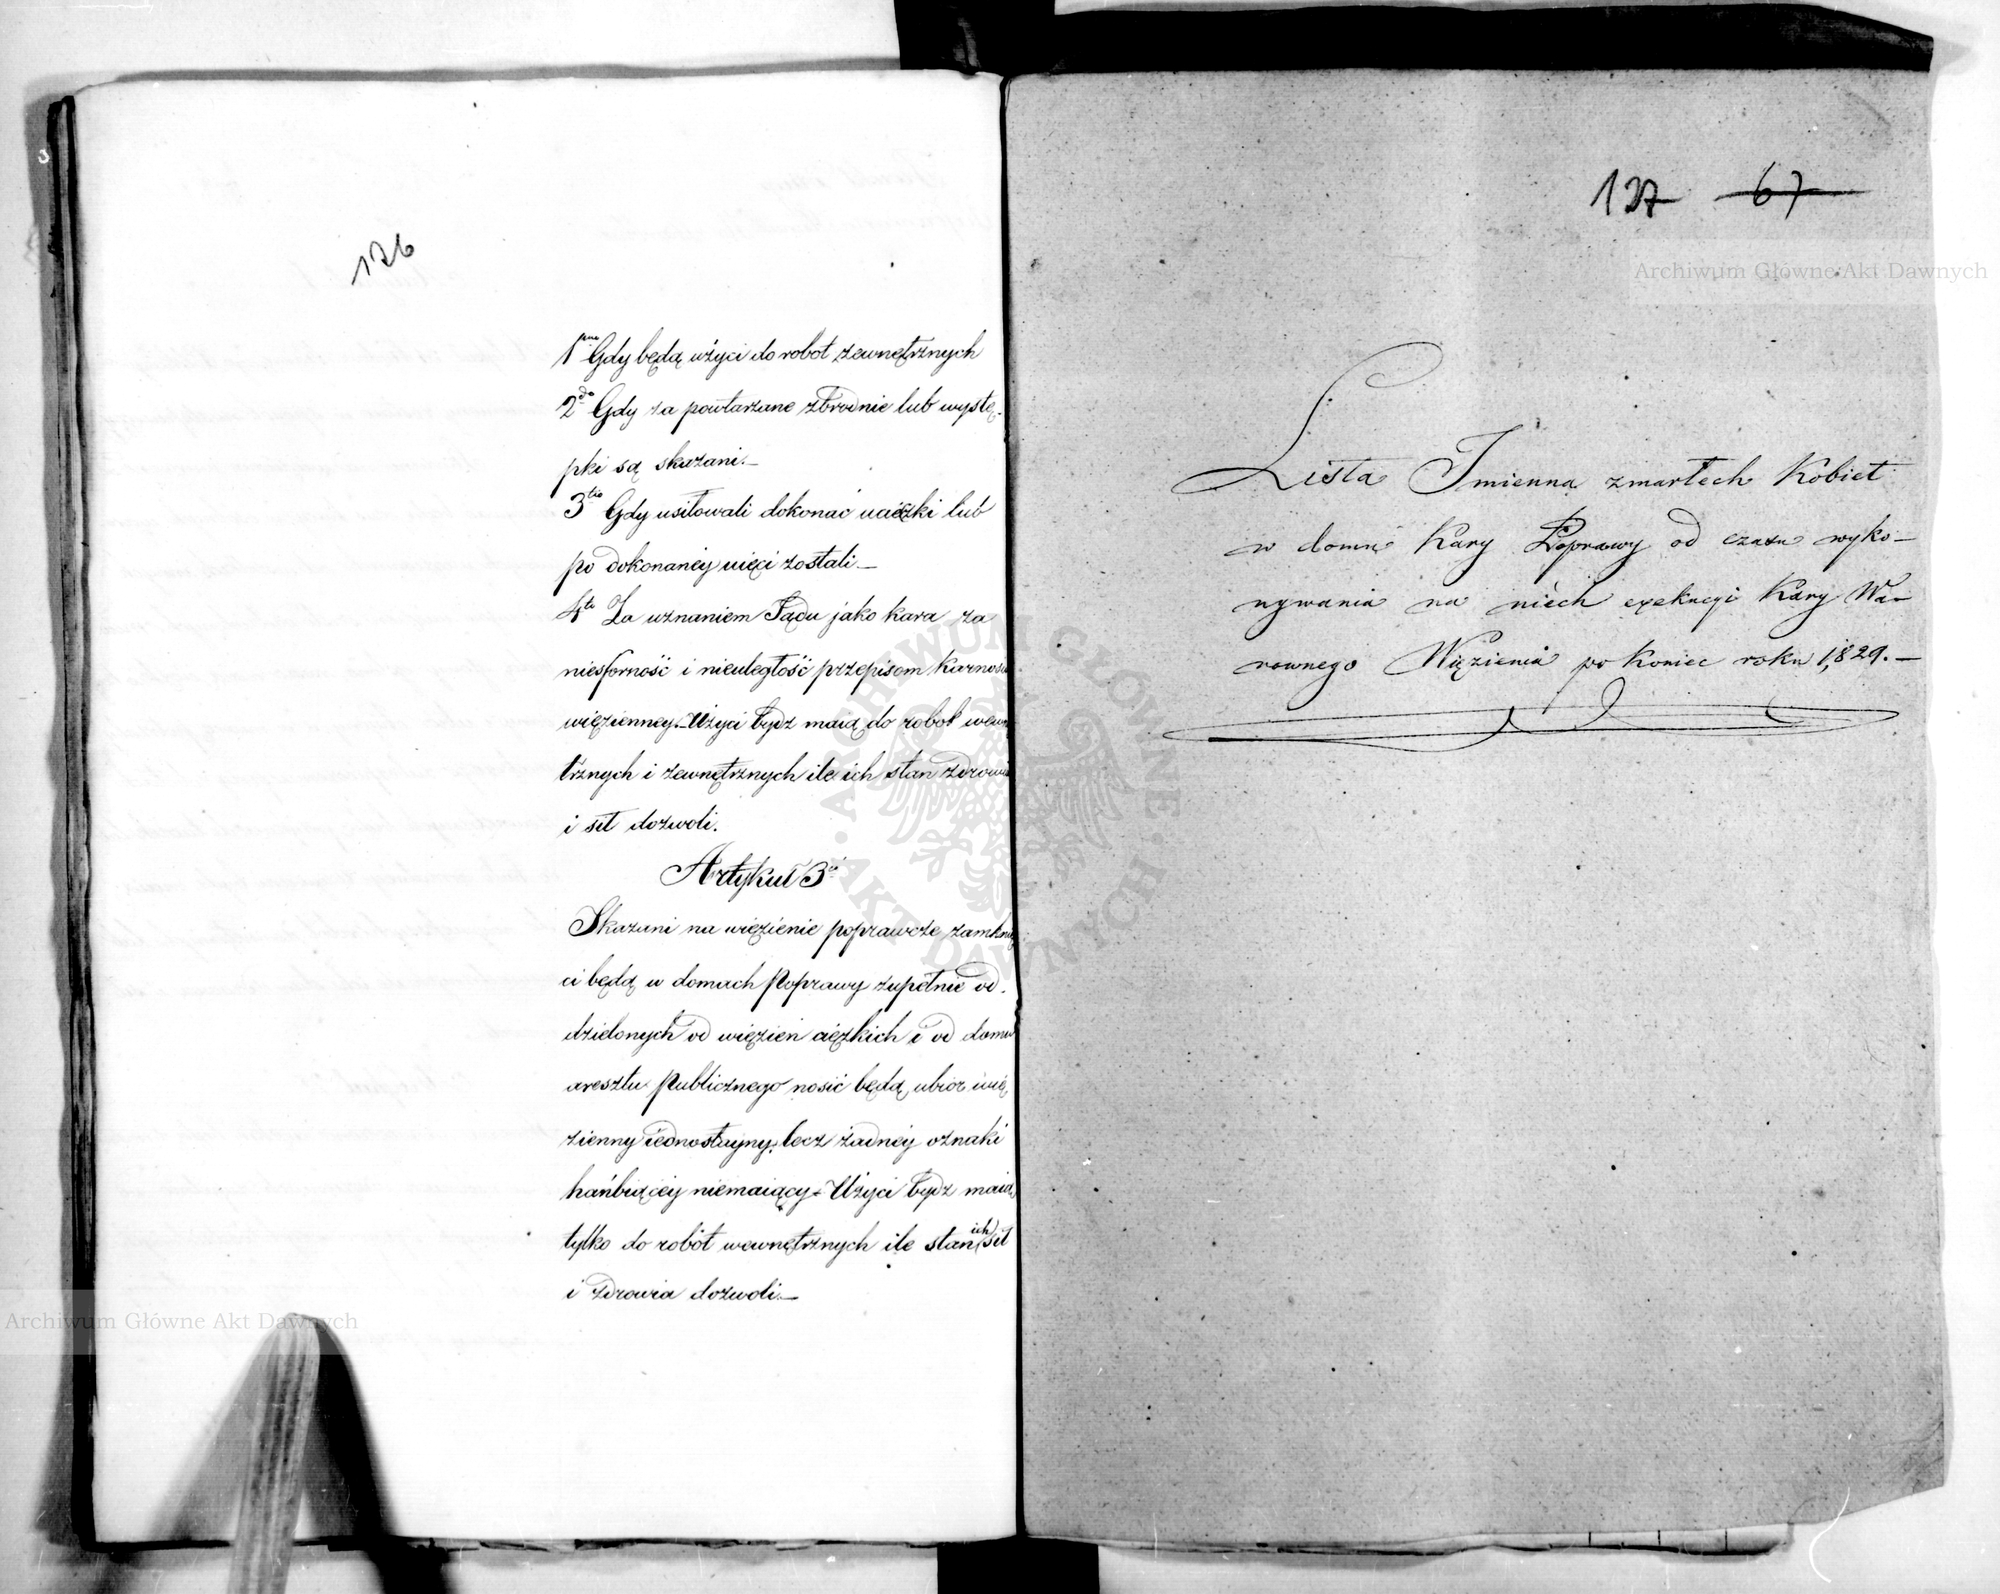 126
1mo Gdy będą użyci do robot zewnętrznych
2do Gdy za powtarzane zbrodnie lub wystę-
pki są skazani.—
3tio Gdy usiłowali dokonać ucieczki lub
po dokonaney uięci zostali—
4to Za uznaniem Sądu jako kara za
niesforność i nieuległość przepisom karnos
więzienney.— Użyci bydź maią do robot wewn
trznych i zewnętrznych ile ich stan zdrowia
i sił dozwoli.
Artykuł 3ci
Skazani na więzienie poprawcze zamknię
ci będą w domach Poprawy zupełnie od-
dzielonych od więzień cięzkich i od domu
aresztu Publicznego nosić będą ubior wię
zienny iednostayny, lecz żadney oznaki
hańbiącey niemaiący.— Użyci bydź maią
tylko do robót wewnętrznych ile stan ich sił
i zdrowia dozwoli.—
127 67
Lista Imienna zmarłech Kobiet
w domu Kary Poprawy od czasu wyko-
nywania na niech exekucyi Kary Wa-
rownego Więzienia po koniec roku 1829.—
Archiwum Główne Akt Dawnych
Archiwum Główne Akt Dawnych
ARCHIWUM GŁÓWNE AKT DAWNYCH